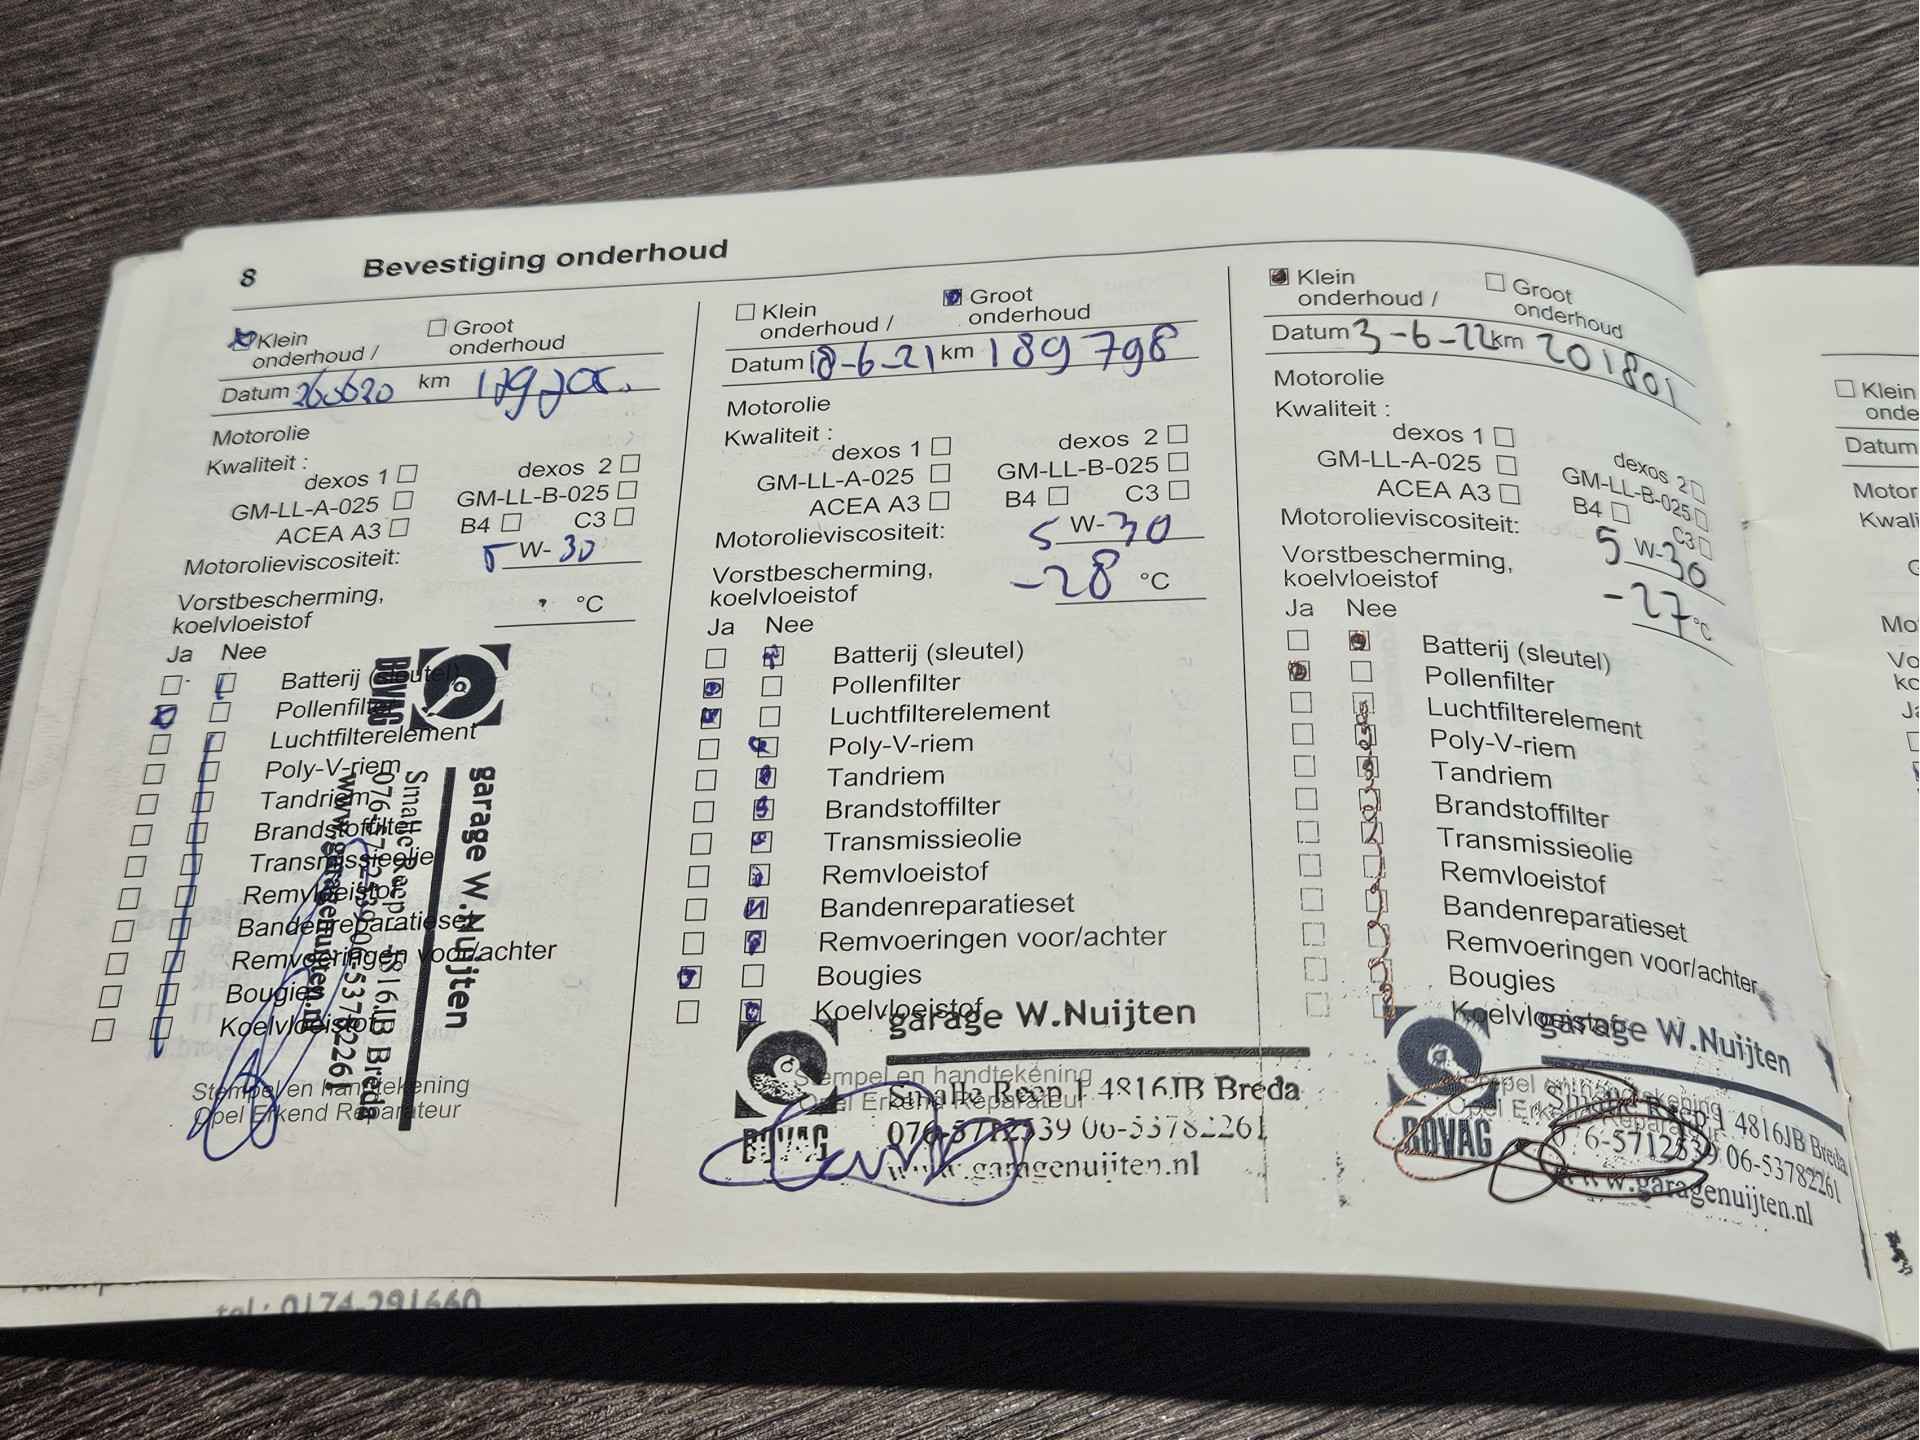 8 Bevestiging onderhoud
Klein onderhoud / Groot onderhoud
Datum km
Motorolie
Kwaliteit :
dexos 1 dexos 2
GM-LL-A-025 GM-LL-B-025
ACEA A3 B4 C3
Motorolieviscositeit: 5 W- 30
Vorstbescherming,
koelvloeistof °C
Ja Nee
Batterij (sleutel)
Pollenfilter
Luchtfilterelement
Poly-V-riem
Tandriem
Brandstoffilter
Transmissieolie
Remvloeistof
Bandenreparatieset
Remvoeringen voor/achter
Bougies
Koelvloeistof
Stempel en handtekening
Opel Erkend Reparateur
BOVAG
garage W.Nuijten
Smalle Reep 1 4816JB Breda
076-5712539 06-53782261
www.garagenuijten.nl
Klein onderhoud / Groot onderhoud
Datum 18-6-21 km 189798
Motorolie
Kwaliteit :
dexos 1 dexos 2
GM-LL-A-025 GM-LL-B-025
ACEA A3 B4 C3
Motorolieviscositeit: 5 W- 30
Vorstbescherming,
koelvloeistof -28 °C
Ja Nee
Batterij (sleutel)
Pollenfilter
Luchtfilterelement
Poly-V-riem
Tandriem
Brandstoffilter
Transmissieolie
Remvloeistof
Bandenreparatieset
Remvoeringen voor/achter
Bougies
Koelvloeistof
garage W.Nuijten
Stempel en handtekening
Opel Erkend Reparateur
Smalle Reep 1 4816JB Breda
076-5712539 06-53782261
BOVAG
www.garagenuijten.nl
Klein onderhoud / Groot onderhoud
Datum 3-6-22 km 201801
Motorolie
Kwaliteit :
dexos 1 dexos 2
GM-LL-A-025 GM-LL-B-025
ACEA A3 B4 C3
Motorolieviscositeit: 5 W-30
Vorstbescherming,
koelvloeistof -27 °C
Ja Nee
Batterij (sleutel)
Pollenfilter
Luchtfilterelement
Poly-V-riem
Tandriem
Brandstoffilter
Transmissieolie
Remvloeistof
Bandenreparatieset
Remvoeringen voor/achter
Bougies
Koelvloeistof
garage W.Nuijten
Stempel en handtekening
Opel Erkend Reparateur
Smalle Reep 1 4816JB Breda
076-5712539 06-53782261
BOVAG
www.garagenuijten.nl
Klein
Datum
tel: 0174-291660